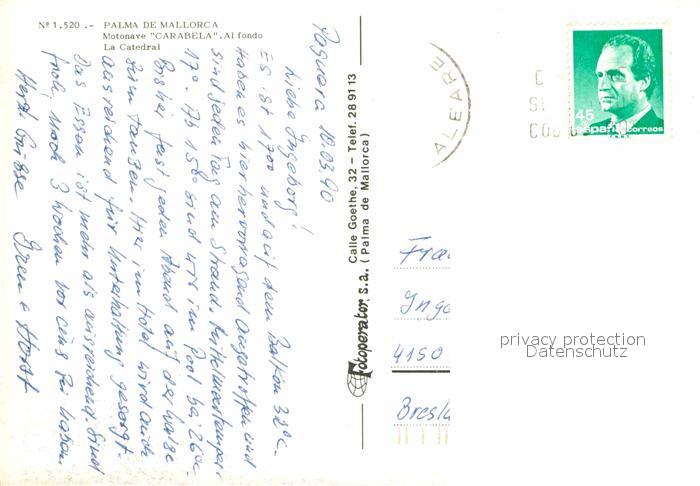 Nº 1.520 .- PALMA DE MALLORCA
Motonave "CARABELA". Al fondo
La Catedral
Paguera 10.03.90
Liebe Ingeborg!
Es ist 17oo und auf dem Balkon 32°C.
Haben es hier hervorragend angetroffen und
sind jeden Tag am Strand.
17°. Ab 15oo sind wir im Pool bei 26°C.
Bisher fast jeden Abend auf der Walze
zum tanzen. Hier im Hotel wird auch
ausreichend für Unterhaltung gesorgt.
Das Essen ist mehr als ausreichend. Sind
froh, noch 3 Wochen vor uns zu haben.
Herzl. Grüsse Iren + Horst
Fotoperator, s.a. Calle Goethe, 32 – Telef. 28 91 13
(Palma de Mallorca)
ALEARE
45
España correos
Fra
Inge
4150
Bresla
privacy protection
Datenschutz